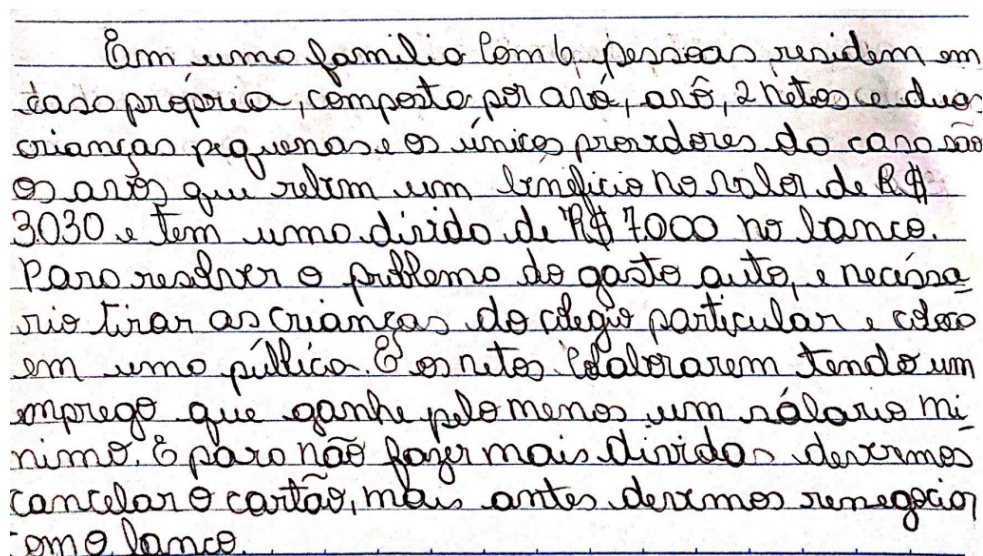 Em uma familia Com 6 pessoas residem em
casa própria, composta por avó, avô, 2 netos e duas
crianças pequenas e os únicos provedores da casa são
os avós que retim um beneficio no valor de R$
3.030 e tem uma divida de R$ 7.000 no banco.
Para resolver o problema do gasto auto, e necéssa
rio tirar as crianças do colegio particular e coloca
em uma pública. E os netos Colaborarem tendo um
emprego que ganhe pelo menos um sálario mi
nimo. E para não fazer mais dividas devemos
cancelar o cartão, mais antes devemos renegociar
om o banco.